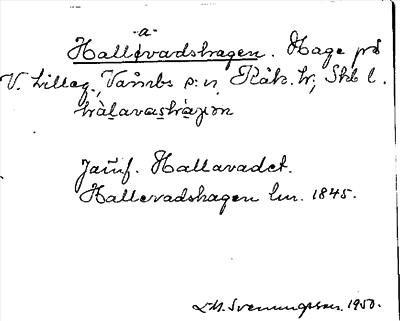 -a-
Hallevadshagen. Hage på
V. Lilleg., Tanums s:n, Kåk. hr, Skb l.
hàlavashàgɜn
Jämf. Hallavadet.
Hallevadshagen lm. 1845.
LM. Svenungsson. 1950.